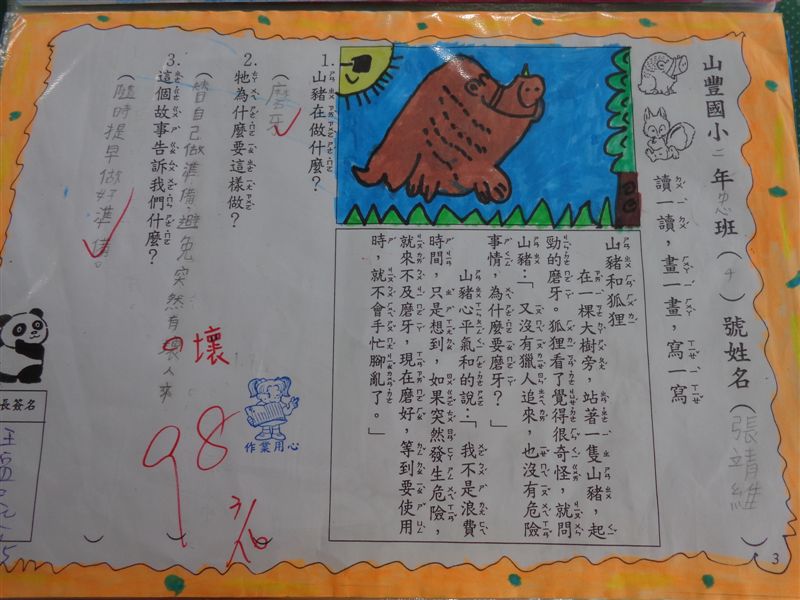 山豐國小二年忠班（4）號姓名（張靖維）
讀一讀，畫一畫，寫一寫
山豬和狐狸
在一棵大樹旁，站著一隻山豬，起
勁的磨牙。狐狸看了覺得很奇怪，就問
山豬：「又沒有獵人追來，也沒有危險
事情，為什麼要磨牙？」
山豬心平氣和的說：「我不是浪費
時間，只是想到，如果突然發生危險，
就來不及磨牙，現在磨好，等到要使用
時，就不會手忙腳亂了。」
1. 山豬在做什麼？
（磨牙）
2. 牠為什麼要這樣做？
（替自己做準備，避免突然有壞人來）
3. 這個故事告訴我們什麼？
（隨時提早做好準備。）
壞
98
3/16
作業用心
長簽名
3